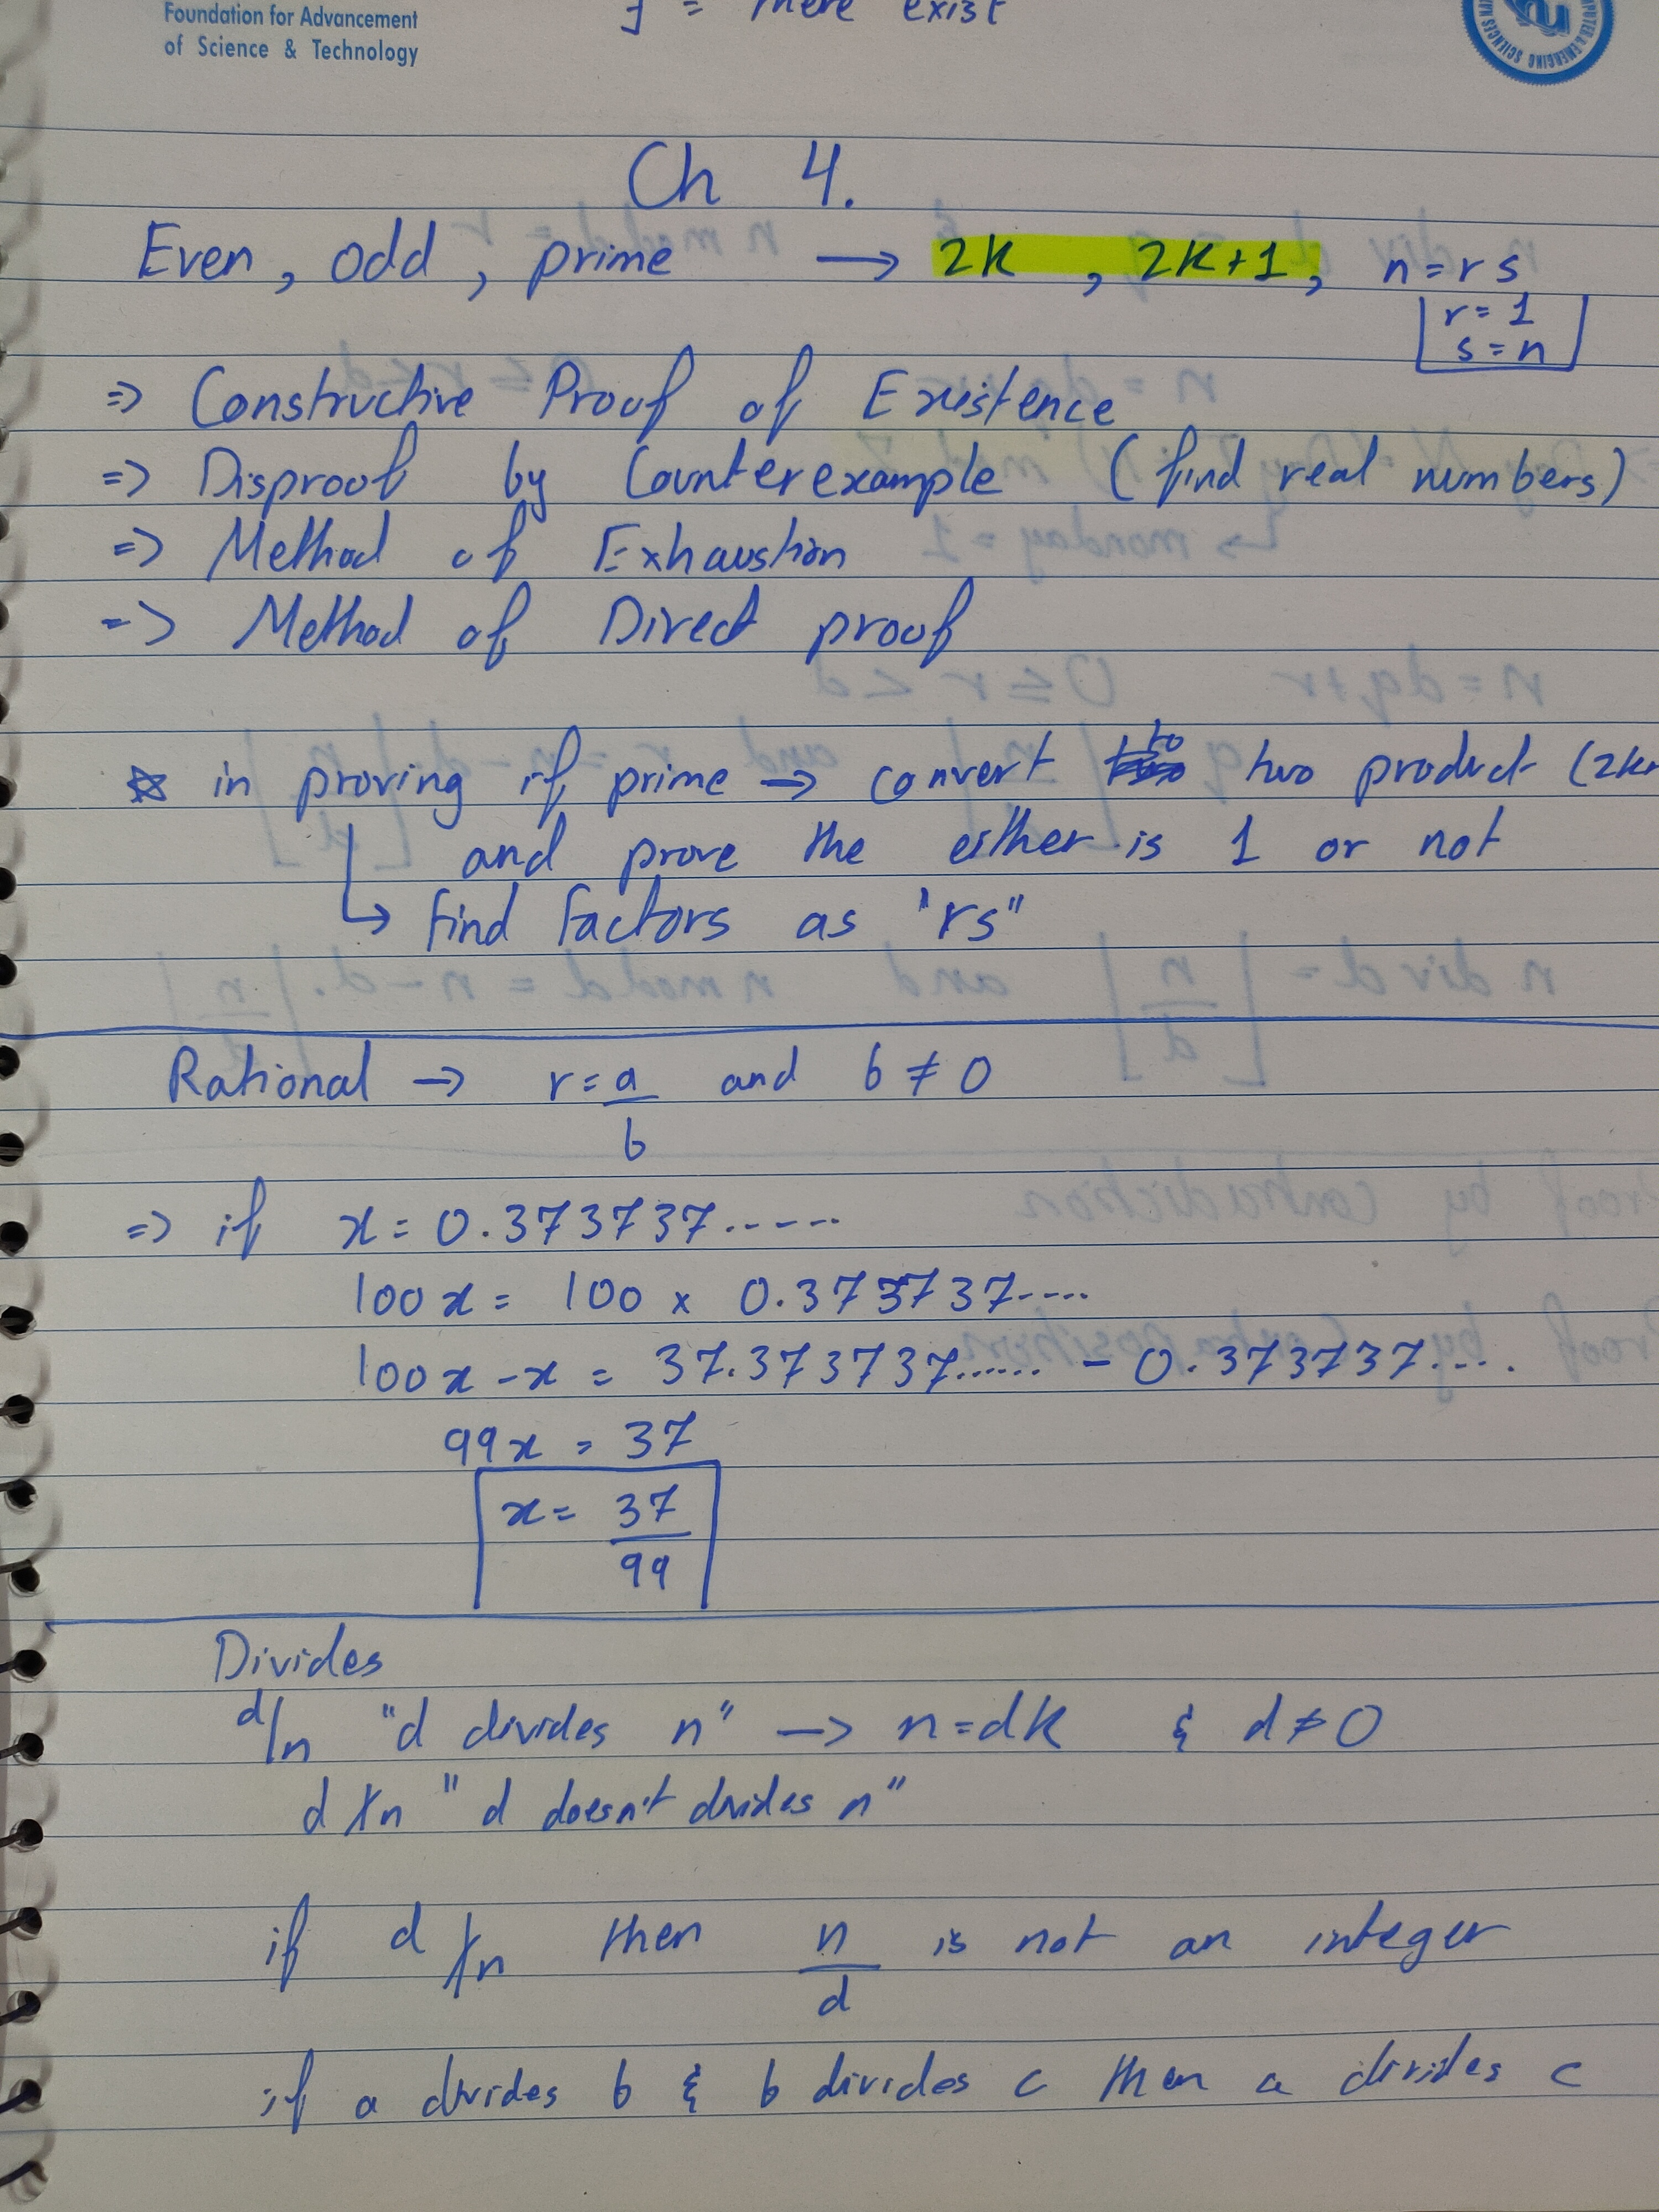 Foundation for Advancement
of Science & Technology
= there exist
Ch 4.
Even, odd, prime → 2k, 2k+1, n = r s
r = 1
s = n
=> Constructive Proof of Existence
=> Disproof by Counterexample (find real numbers)
=> Method of Exhaustion
=> Method of Direct proof
☆ in proving if prime → convert to two product (2k
and prove the either is 1 or not
↳ find factors as "rs"
Rational → r = a/b and b ≠ 0
=> if x = 0.373737.....
100x = 100 × 0.373737....
100x - x = 37.373737...... - 0.373737....
99x = 37
x = 37/99
Divides
d/n "d divides n" → n = dk & d ≠ 0
d ∤ n "d doesn't divides n"
if d ∤ n then n/d is not an integer
if a divides b & b divides c then a divides c